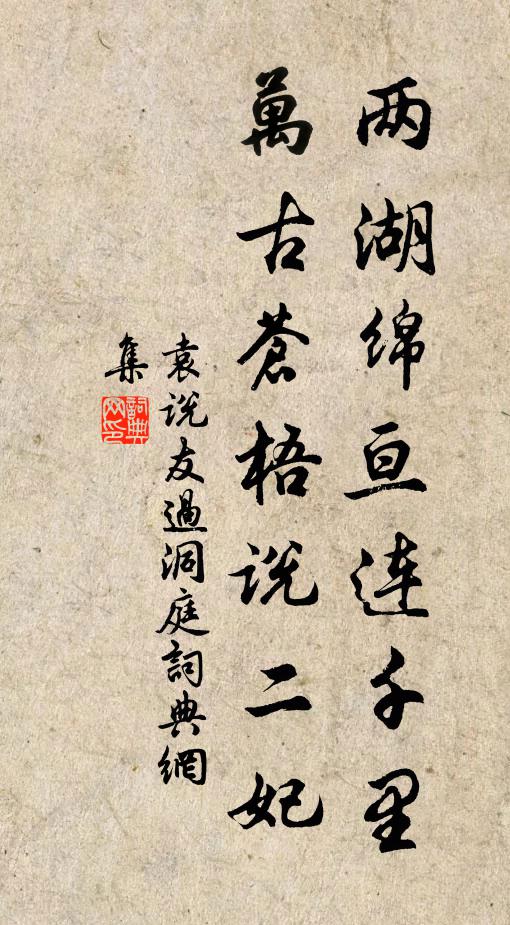 两湖绵亘连千里
萬古蒼梧说二妃
袁说友過洞庭詞典網
集
詞典
网印